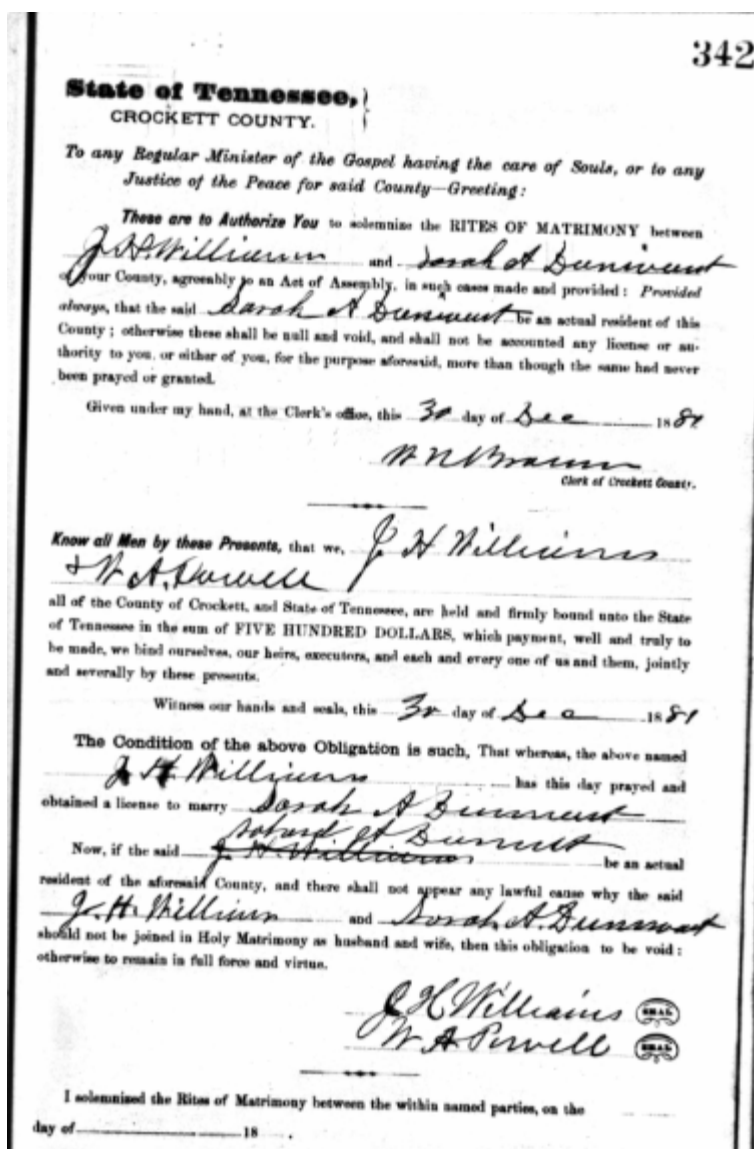 342
State of Tennessee, }
CROCKETT COUNTY.
To any Regular Minister of the Gospel having the care of Souls, or to any
Justice of the Peace for said County—Greeting:
These are to Authorize You to solemnize the RITES OF MATRIMONY between
J H Williams and Sarah A
of your County, agreeably to an Act of Assembly, in such cases made and provided: Provided
always, that the said Sarah A be an actual resident of this
County; otherwise these shall be null and void, and shall not be accounted any license or au-
thority to you, or either of you, for the purpose aforesaid, more than though the same had never
been prayed or granted.
Given under my hand, at the Clerk's office, this 30 day of Dec 1881
Clerk of Crockett County.
Know all Men by these Presents, that we, J H Williams
& W A. Powell
all of the County of Crockett, and State of Tennessee, are held and firmly bound unto the State
of Tennessee in the sum of FIVE HUNDRED DOLLARS, which payment, well and truly to
be made, we bind ourselves, our heirs, executors, and each and every one of us and them, jointly
and severally by these presents.
Witness our hands and seals, this 30 day of Dec 1881
The Condition of the above Obligation is such, That whereas, the above named
J H Williams has this day prayed and
obtained a license to marry Sarah A
Now, if the said J H Williams be an actual
resident of the aforesaid County, and there shall not appear any lawful cause why the said
J. H. Williams and Sarah A.
should not be joined in Holy Matrimony as husband and wife, then this obligation to be void:
otherwise to remain in full force and virtue.
J H Williams SEAL
W A Powell SEAL
I solemnized the Rites of Matrimony between the within named parties, on the
day of 18 .